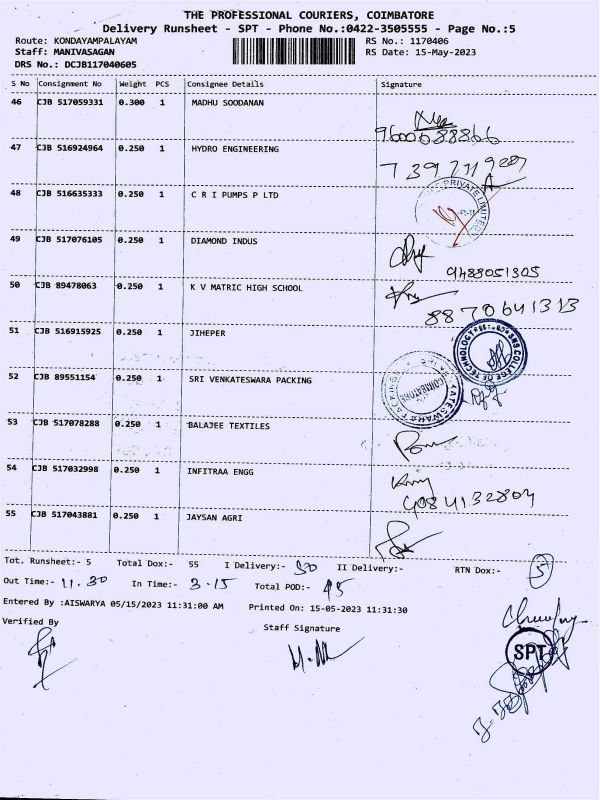 THE PROFESSIONAL COURIERS, COIMBATORE
Delivery Runsheet - SPT - Phone No.:0422-3505555 - Page No.:5
Route: KONDAYAMPALAYAM RS No.: 1170406
Staff: MANIVASAGAN RS Date: 15-May-2023
DRS No.: DCJB117040605
S No Consignment No Weight PCS Consignee Details Signature
46 CJB 517059331 0.300 1 MADHU SOODANAN
9600688866
47 CJB 516924964 0.250 1 HYDRO ENGINEERING
48 CJB 516635333 0.250 1 C R I PUMPS P LTD
PRIVATE LIMITED
49 CJB 517076105 0.250 1 DIAMOND INDUS
9488051305
50 CJB 89478063 0.250 1 K V MATRIC HIGH SCHOOL
8870641313
51 CJB 516915925 0.250 1 JIHEPER
SNS COLLEGE OF TECHNOLOGY
52 CJB 89551154 0.250 1 SRI VENKATESWARA PACKING
COIMBATORE
53 CJB 517078288 0.250 1 BALAJEE TEXTILES
54 CJB 517032998 0.250 1 INFITRAA ENGG
55 CJB 517043881 0.250 1 JAYSAN AGRI
Tot. Runsheet:- 5 Total Dox:- 55 I Delivery:- 50 II Delivery:- RTN Dox:- 5
Out Time:- 11.30 In Time:- 3-15 Total POD:- 45
Entered By :AISWARYA 05/15/2023 11:31:00 AM Printed On: 15-05-2023 11:31:30
Verified By Staff Signature
SPT